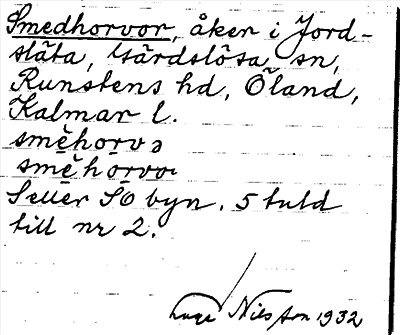 Smedhorvor, åker i Jord-
släta, Gärdslösa sn,
Runstens hd, Öland,
Kalmar l.
smèhorvə
smèhorvɑ
S eller SO byn. 5 tunld
till nr 2.
Nilsson 1932